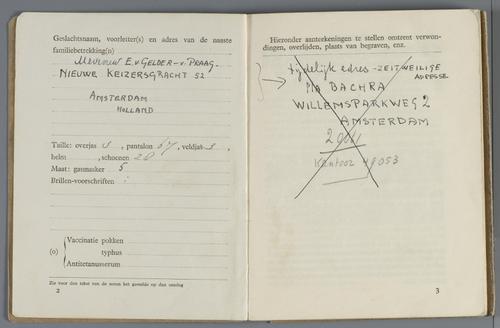 Geslachtsnaam, voorletter(s) en adres van de naaste
familiebetrekking(n)
Mevrouw E. v Gelder - v. Praag.
NIEUWE KEIZERSGRACHT 52
AMSTERDAM
HOLLAND
Taille: overjas 3, pantalon 57, veldjas 3,
helm , schoenen 28
Maat: gasmasker 5
Brillen-voorschriften :
(o) Vaccinatie pokken
typhus
Antitetanusserum
Zie voor den tekst van de noten het gestelde op den omslag
2
Hieronder aanteekeningen te stellen omtrent verwon-
dingen, overlijden, plaats van begraven, enz.
tijdelijk adres - ZEITWEILIGE
ADRESSE
P/A BACHRA
WILLEMSPARKWEG 2
AMSTERDAM
Kantoor 49053
3